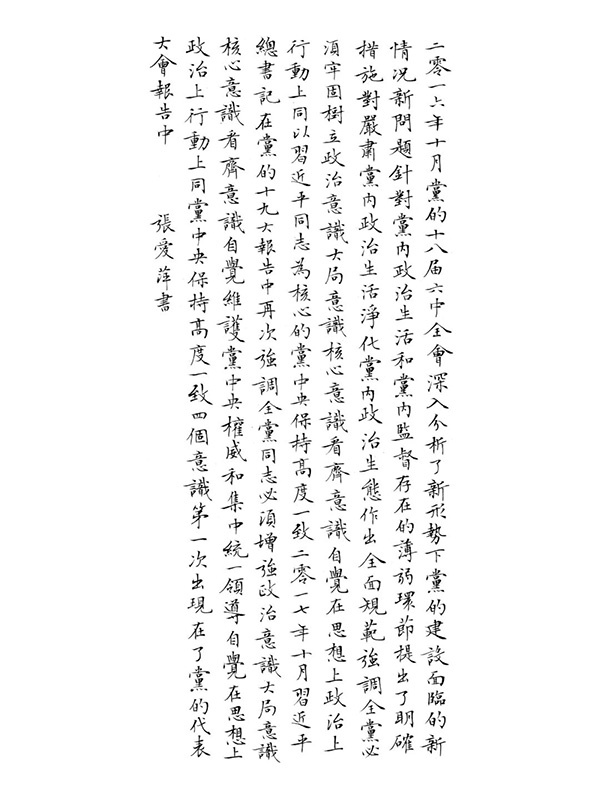 二零一六年十月黨的十八届六中全會深入分析了新形勢下黨的建設面臨的新
情况新問題針對黨内政治生活和黨内監督存在的薄弱環節提出了明確
措施對嚴肅黨内政治生活淨化黨内政治生態作出全面規範強調全黨必
須牢固樹立政治意識大局意識核心意識看齊意識自覺在思想上政治上
行動上同以習近平同志為核心的黨中央保持高度一致二零一七年十月習近平
總書記在黨的十九大報告中再次強調全黨同志必須增強政治意識大局意識
核心意識看齊意識自覺維護黨中央權威和集中統一領導自覺在思想上
政治上行動上同黨中央保持高度一致四個意識第一次出現在了黨的代表
大會報告中　張愛萍書